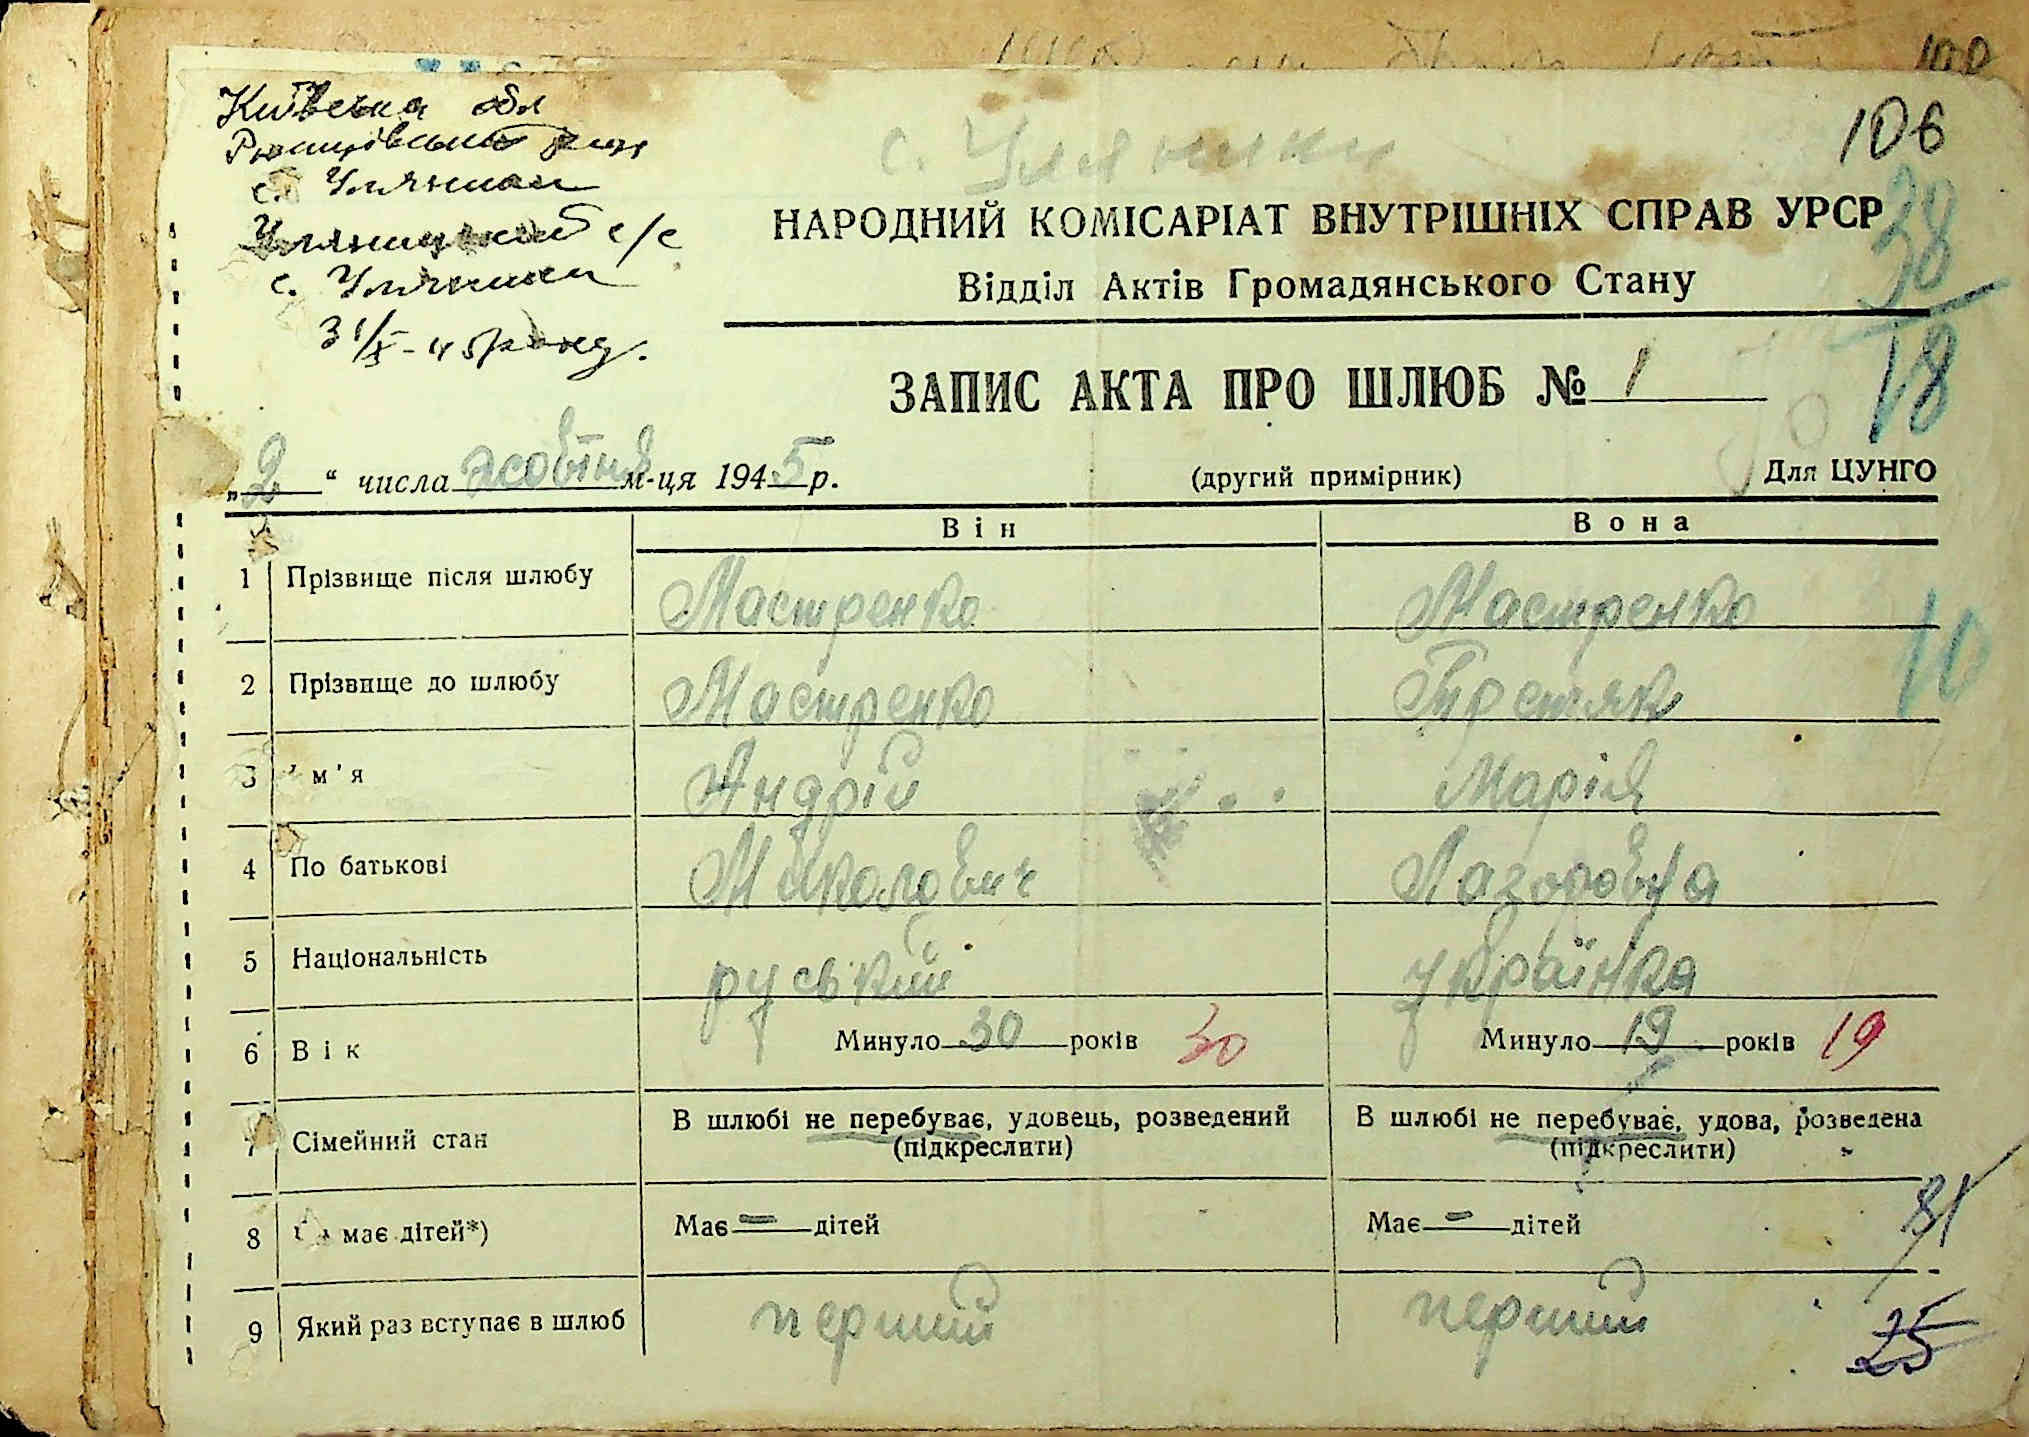 106
Київська обл
с. Уляники
с. Уляники
с/с
с. Уляники
38
18
НАРОДНИЙ КОМІСАРІАТ ВНУТРІШНІХ СПРАВ УРСР
Відділ Актів Громадянського Стану
ЗАПИС АКТА ПРО ШЛЮБ № 1
„2“ числа жовтня м-ця 1945 р.
(другий примірник)
Для ЦУНГО
Він
Вона
1 Прізвище після шлюбу Мастренко Мастренко
10
2 Прізвище до шлюбу Мастренко Третяк
3 м'я Андрій Марія
4 По батькові Миколович Лазоровна
5 Національність руський українка
6 Вік Минуло 30 років 30 Минуло 19 років 19
7 Сімейний стан В шлюбі не перебуває, удовець, розведений В шлюбі не перебуває, удова, розведена
(підкреслити) (підкреслити)
8 має дітей*) Має — дітей Має — дітей
81
9 Який раз вступає в шлюб перший перший
25